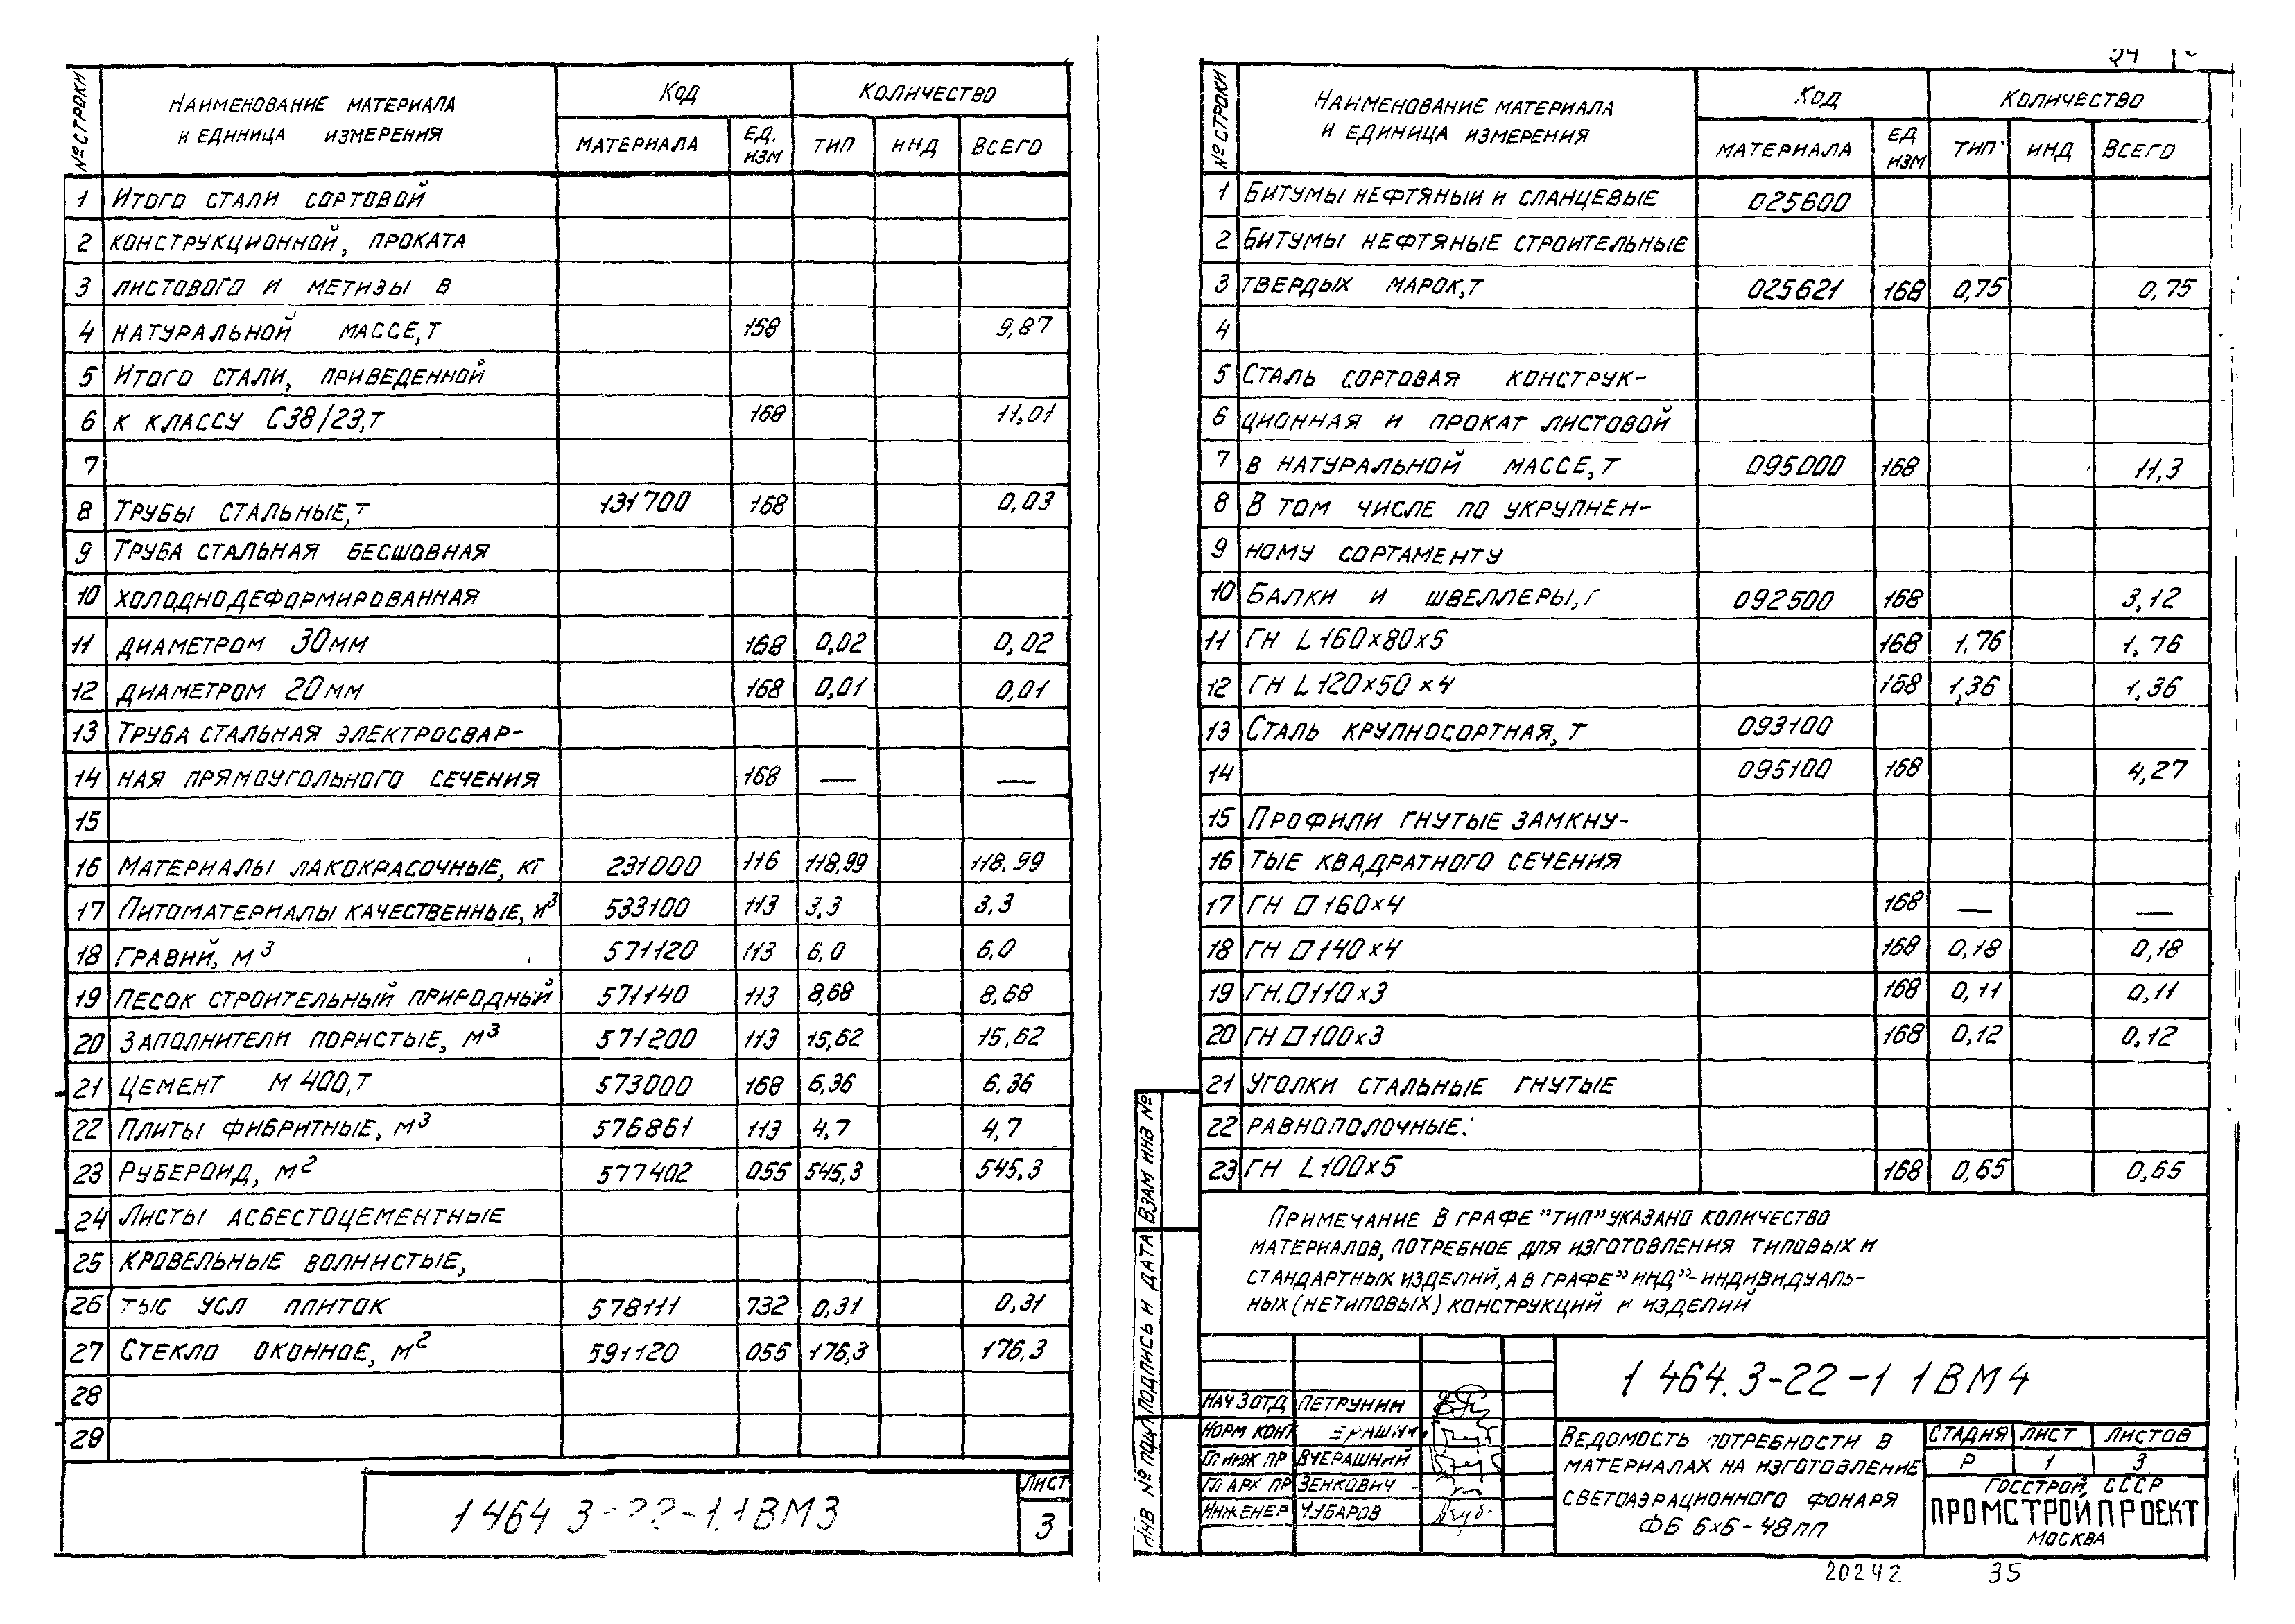 № СТРОКИ
НАИМЕНОВАНИЕ МАТЕРИАЛА
И ЕДИНИЦА ИЗМЕРЕНИЯ
КОД
КОЛИЧЕСТВО
МАТЕРИАЛА ЕД. ИЗМ ТИП ИНД ВСЕГО
1 ИТОГО СТАЛИ СОРТОВОЙ
2 КОНСТРУКЦИОННОЙ, ПРОКАТА
3 ЛИСТОВОГО И МЕТИЗЫ В
4 НАТУРАЛЬНОЙ МАССЕ, Т 168 9,87
5 ИТОГО СТАЛИ, ПРИВЕДЕННОЙ
6 К КЛАССУ С38/23, Т 168 11,01
7
8 ТРУБЫ СТАЛЬНЫЕ, Т 131700 168 0,03
9 ТРУБА СТАЛЬНАЯ БЕСШОВНАЯ
10 ХОЛОДНОДЕФОРМИРОВАННАЯ
11 ДИАМЕТРОМ 30ММ 168 0,02 0,02
12 ДИАМЕТРОМ 20ММ 168 0,01 0,01
13 ТРУБА СТАЛЬНАЯ ЭЛЕКТРОСВАР-
14 НАЯ ПРЯМОУГОЛЬНОГО СЕЧЕНИЯ 168 — —
15
16 МАТЕРИАЛЫ ЛАКОКРАСОЧНЫЕ, КГ 231000 116 118,99 118,99
17 ПИТОМАТЕРИАЛЫ КАЧЕСТВЕННЫЕ, М³ 533100 113 3,3 3,3
18 ГРАВИЙ, М³ 571120 113 6,0 6,0
19 ПЕСОК СТРОИТЕЛЬНЫЙ ПРИРОДНЫЙ 571140 113 8,68 8,68
20 ЗАПОЛНИТЕЛИ ПОРИСТЫЕ, М³ 571200 113 15,62 15,62
21 ЦЕМЕНТ М400, Т 573000 168 6,36 6.36
22 ПЛИТЫ ФИБРИТНЫЕ, М³ 576861 113 4,7 4,7
23 РУБЕРОИД, М² 577402 055 545,3 545,3
24 ЛИСТЫ АСБЕСТОЦЕМЕНТНЫЕ
25 КРОВЕЛЬНЫЕ ВОЛНИСТЫЕ,
26 ТЫС УСЛ ПЛИТОК 578111 732 0,31 0,31
27 СТЕКЛО ОКОННОЕ, М² 591120 055 176,3 176,3
28
29
1 464 3-22-1.1ВМ3
ЛИСТ
3
№ СТРОКИ
НАИМЕНОВАНИЕ МАТЕРИАЛА
И ЕДИНИЦА ИЗМЕРЕНИЯ
КОД
КОЛИЧЕСТВО
МАТЕРИАЛА ЕД ИЗМ ТИП ИНД ВСЕГО
1 БИТУМЫ НЕФТЯНЫИ И СЛАНЦЕВЫЕ 025600
2 БИТУМЫ НЕФТЯНЫЕ СТРОИТЕЛЬНЫЕ
3 ТВЕРДЫХ МАРОК, Т 025621 168 0,75 0,75
4
5 СТАЛЬ СОРТОВАЯ КОНСТРУК-
6 ЦИОННАЯ И ПРОКАТ ЛИСТОВОЙ
7 В НАТУРАЛЬНОЙ МАССЕ, Т 095000 168 11,3
8 В ТОМ ЧИСЛЕ ПО УКРУПНЕН-
9 НОМУ СОРТАМЕНТУ
10 БАЛКИ И ШВЕЛЛЕРЫ, Т 092500 168 3,12
11 ГН L160×80×5 168 1,76 1,76
12 ГН L120×50×4 168 1,36 1,36
13 СТАЛЬ КРУПНОСОРТНАЯ, Т 093100
14 095100 168 4,27
15 ПРОФИЛИ ГНУТЫЕ ЗАМКНУ-
16 ТЫЕ КВАДРАТНОГО СЕЧЕНИЯ
17 ГН □ 160×4 168 — —
18 ГН □ 140×4 168 0,18 0,18
19 ГН. □ 110×3 168 0,11 0,11
20 ГН □ 100×3 168 0,12 0,12
21 УГОЛКИ СТАЛЬНЫЕ ГНУТЫЕ
22 РАВНОПОЛОЧНЫЕ:
23 ГН L100×5 168 0,65 0,65
ПРИМЕЧАНИЕ В ГРАФЕ "ТИП" УКАЗАНО КОЛИЧЕСТВО
МАТЕРИАЛОВ, ПОТРЕБНОЕ ДЛЯ ИЗГОТОВЛЕНИЯ ТИПОВЫХ И
СТАНДАРТНЫХ ИЗДЕЛИЙ, А В ГРАФЕ "ИНД"-ИНДИВИДУАЛЬ-
НЫХ (НЕТИПОВЫХ) КОНСТРУКЦИЙ И ИЗДЕЛИЙ
ИНВ № ПОДЛ ПОДПИСЬ И ДАТА ВЗАМ ИНВ №
НАЧ ЗОТД ПЕТРУНИН
НОРМ КОНТ
ГЛ ИНЖ ПР ВЧЕРАШНИЙ
ГЛ АРХ ПР ЗЕНКОВИЧ
ИНЖЕНЕР ЧУБАРОВ
1 464.3-22-1 1ВМ4
ВЕДОМОСТЬ ПОТРЕБНОСТИ В
МАТЕРИАЛАХ НА ИЗГОТОВЛЕНИЕ
СВЕТОАЭРАЦИОННОГО ФОНАРЯ
ФБ 6×6-48ПП
СТАДИЯ ЛИСТ ЛИСТОВ
Р 1 3
ГОССТРОЙ СССР
ПРОМСТРОЙПРОЕКТ
МОСКВА
20242 35